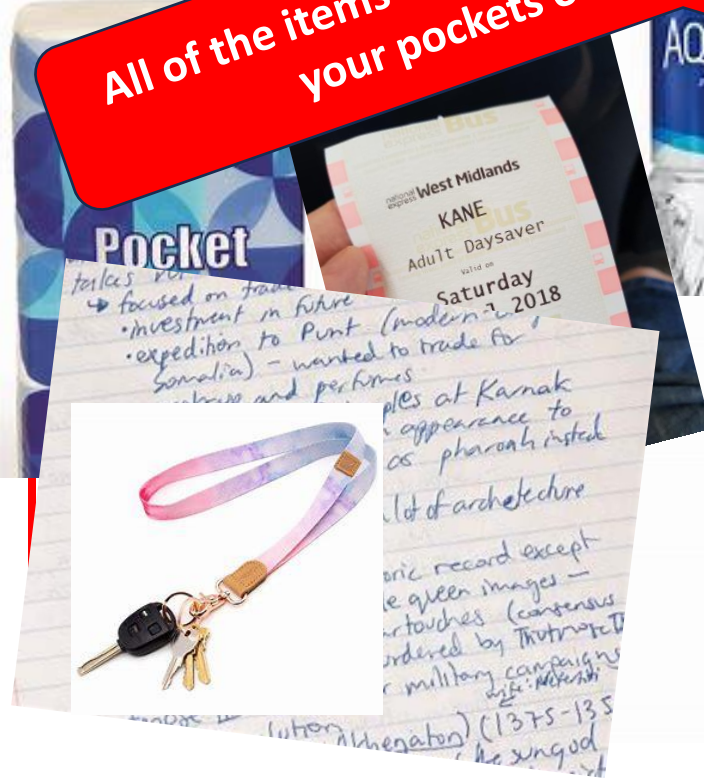 All of the items
your pockets
AQ
Pocket
Bus
national express West Midlands
KANE
Bus
Adult Daysaver
Valid on
Saturday
2018
talks
↳ focused on trade
• investment in future
• expedition to Punt (modern
Somalia) – wanted to trade for
and perfumes
ples at Karnak
appearance to
as pharoah instead
lot of archetecture
oric record except
e queen images –
rtouches (consensus
rdered by Thutmose
military campaigns
wife: Nefertiti
(1375-135
the sungod